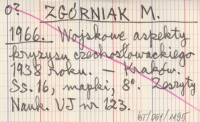 02
ZGÓRNIAK M.
1966. Wojskowe aspekty
kryzysu czechosłowackiego
1938 roku. — Kraków.
Ss. 16, mapki, 8°. Zeszyty
Nauk. UJ nr 123.